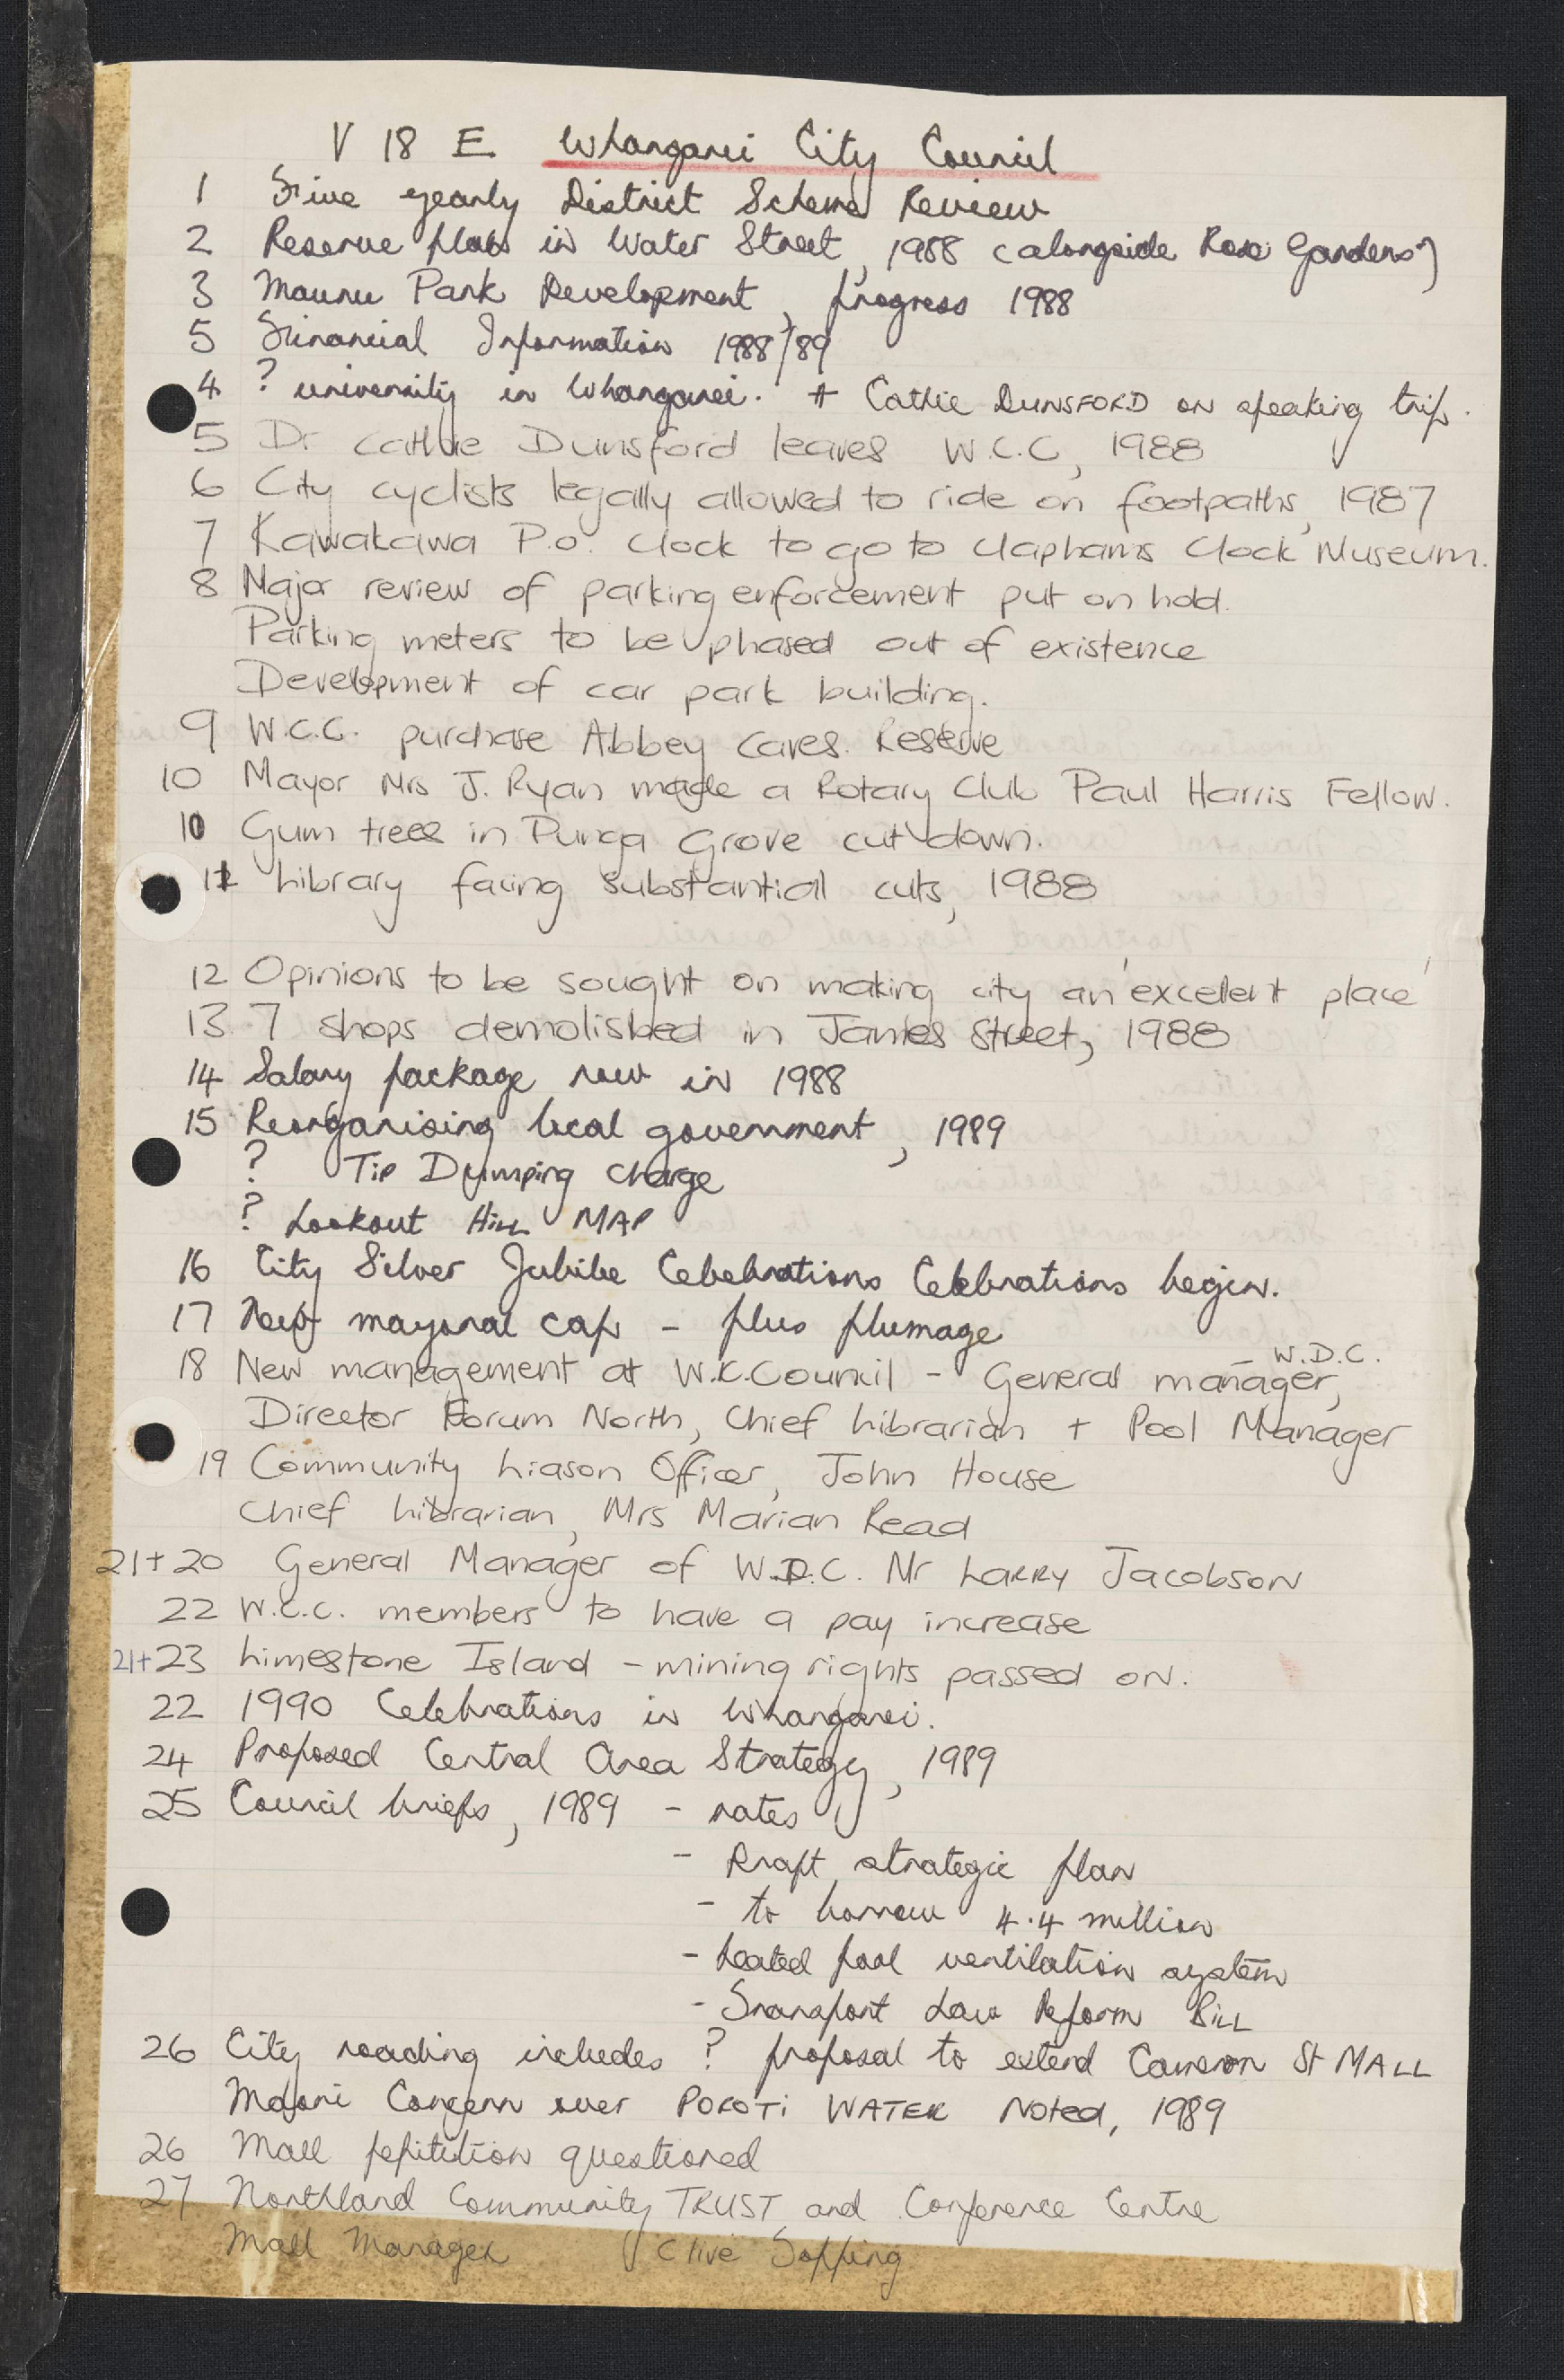 V 18 E Whangarei City Council
1 Five yearly District Scheme Review
2 Reserve plans in Water Street, 1988 (alongside Rose Gardens)
3 Maunu Park Development, progress 1988
5 Financial Information 1988/89
4 ? university in Whangarei. + Cathie DUNSFORD ON speaking trip.
5 Dr Cathie Dunsford leaves W.C.C, 1988
6 City cyclists legally allowed to ride on footpaths, 1987
7 Kawakawa P.O. Clock to go to Claphams Clock Museum.
8 Major review of parking enforcement put on hold.
Parking meters to be phased out of existence
Development of car park building.
9 W.C.C. purchase Abbey Caves. Reserve
10 Mayor Mrs J. Ryan made a Rotary Club Paul Harris Fellow.
10 Gum trees in Punga Grove cut down.
11 Library facing substantial cuts, 1988
12 Opinions to be sought on making city an 'excellent place'
13 7 shops demolished in James Street, 1988
14 Salary package row in 1988
15 Reorganising local government, 1989
? Tip Dumping Charge
? Lookout Hill MAP
16 City Silver Jubilee Celebrations Celebrations begin.
17 New mayoral cap - plus plumage
18 New management at W.C.Council - General manager, W.D.C.
Director Forum North, Chief Librarian + Pool Manager
19 Community Liason Officer, John House
Chief Librarian, Mrs Marian Read
21+20 General Manager of W.D.C. Mr LARRY JACOBSON
22 W.C.C. members to have a pay increase
21+23 Limestone Island - mining rights passed on.
22 1990 Celebrations in Whangarei.
24 Proposed Central Area Strategy, 1989
25 Council briefs, 1989 - rates
- Draft strategic plan
- to borrow 4.4 million
- heated pool ventilation system
- Transport Law Reform Bill
26 City roading includes ? proposal to extend Cameron St MALL
Maori Concern over POROTI WATER Noted, 1989
26 Mall petition questioned
27 Northland Community TRUST and Conference Centre
Mall Manager Clive